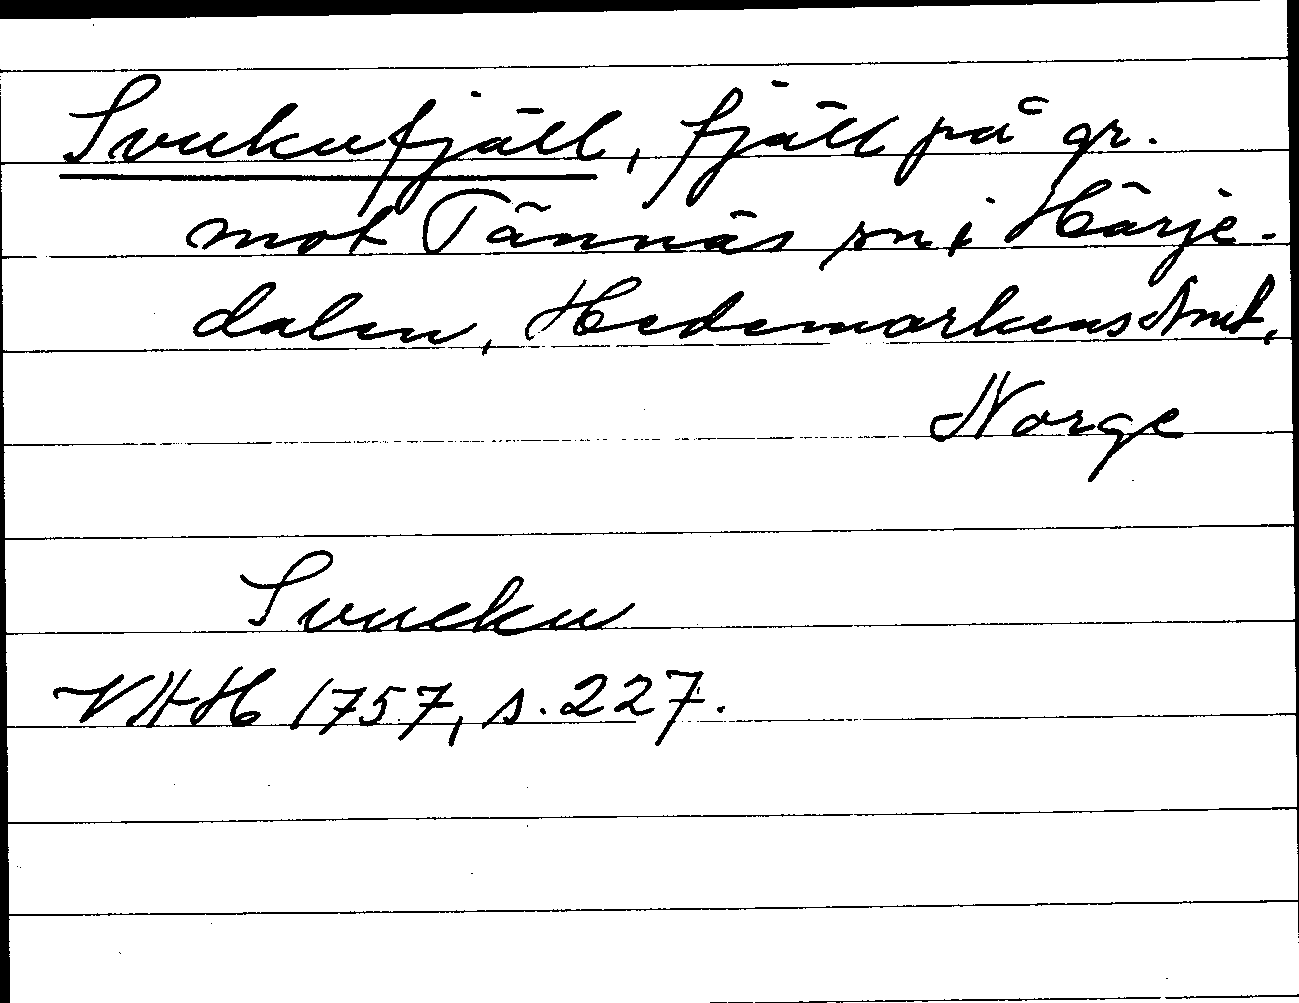 Svukufjäll, fjäll på gr.
mot Tännäs sn i Härje-
dalen, Hedemarkens Amt,
Norge
Svucku
VHH 1757, s. 227.